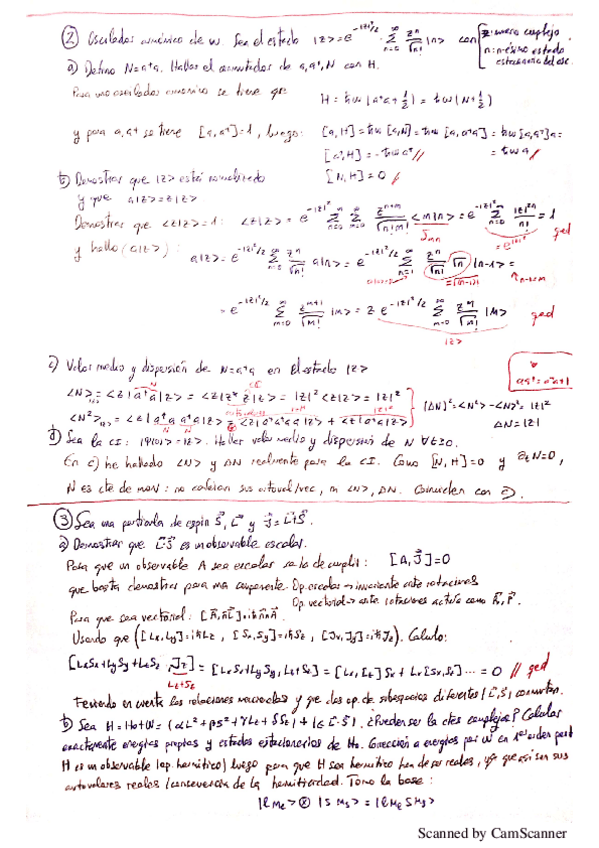 ② Oscilador armónico de ω. Sea el estado |z> = e^{-|z|²/2} Σ_{n=0}^{∞} z^n/√n! |n> con [z: número complejo
n: n-ésimo estado
estacionario del osc.
a) Defino N=a⁺a. Hallar el conmutador de a, a⁺, N con H.
Para un oscilador armónico se tiene que H = ħω(a⁺a + 1/2) = ħω(N + 1/2)
y para a, a⁺ se tiene [a, a⁺] = 1, luego: [a, H] = ħω[a, N] = ħω[a, a⁺a] = ħω[a, a⁺]a =
[a⁺, H] = -ħωa⁺ // = ħωa //
[N, H] = 0 //
b) Demostrar que |z> está normalizado
y que a|z> = z|z>
Demostrar que <z|z> = 1: <z|z> = e^{-|z|²} Σ_{n=0}^{∞} Σ_{m=0}^{∞} z^{n+m}/√n!m! <m|n> = e^{-|z|²} Σ_{n=0}^{∞} |z|^{2n}/n! = 1
δ_{mn} = e^{|z|²} qed
y hallo (a|z>): a|z> = e^{-|z|²/2} Σ_{n=0}^{∞} z^n/√n! a|n> = e^{-|z|²/2} Σ_{n=1}^{∞} z^n/√n! √n |n-1> =
= √(n-1)! n-1=m
= e^{-|z|²/2} Σ_{m=0}^{∞} z^{m+1}/√m! |m> = z e^{-|z|²/2} Σ_{m=0}^{∞} z^m/√m! |m> qed
|z>
c) Valor medio y dispersión de N=a⁺a en el estado |z>
aa⁺ = a⁺a+1
<N>_{|z>} = <z|a⁺a|z> = <z|z* z|z> = |z|² <z|z> = |z|²
<N²>_{|z>} = <z|a⁺a a⁺a|z> = <z|a⁺a⁺a a|z> + <z|a⁺a|z> } (ΔN)² = <N²> - <N>² = |z|²
ΔN = |z|
d) Sea la CI: |Ψ(0)> = |z>. Hallar valor medio y dispersión de N ∀t≥0.
En c) he hallado <N> y ΔN realmente para la CI. Como [N, H] = 0 y ∂_t N = 0,
N es cte de mov: no cambian sus autoval/vec, ni <N>, ΔN. Coinciden con c).
③ Sea una partícula de espín S, L y J = L+S.
a) Demostrar que L·S es un observable escalar.
Para que un observable A sea escalar se ha de cumplir: [A, J] = 0
que basta demostrar para una componente. Op. escalar → invariante ante rotaciones
Op. vectorial → ante rotaciones actúa como R, P.
Para que sea vectorial:
Usando que ([Lx, Ly] = iħLz, [Sx, Sy] = iħSz, [Jx, Jy] = iħJz). Calculo:
[LxSx + LySy + LzSz, Jz] = [LxSx + LySy, Lz + Sz] = [Lx, Lz]Sx + Lx[Sx, Sz] ... = 0 // qed
Lz+Sz
Teniendo en cuenta las relaciones mencionadas y que dos op. de subespacios diferentes (L, S) conmutan.
b) Sea H = H₀ + W = (αL² + βS² + γLz + δSz) + (ε L·S). ¿Pueden ser las ctes complejas? Calcular
exactamente energías propias y estados estacionarios de H₀. Corrección a energías por W en 1er orden pert.
H es un observable (op. hermítico) luego para que H sea hermítico han de ser reales, ya que así son sus
autovalores reales (consecuencia de la hermiticidad). Tomo la base:
|l m_l> ⊗ |s m_s> = |l m_l s m_s>
Scanned by CamScanner